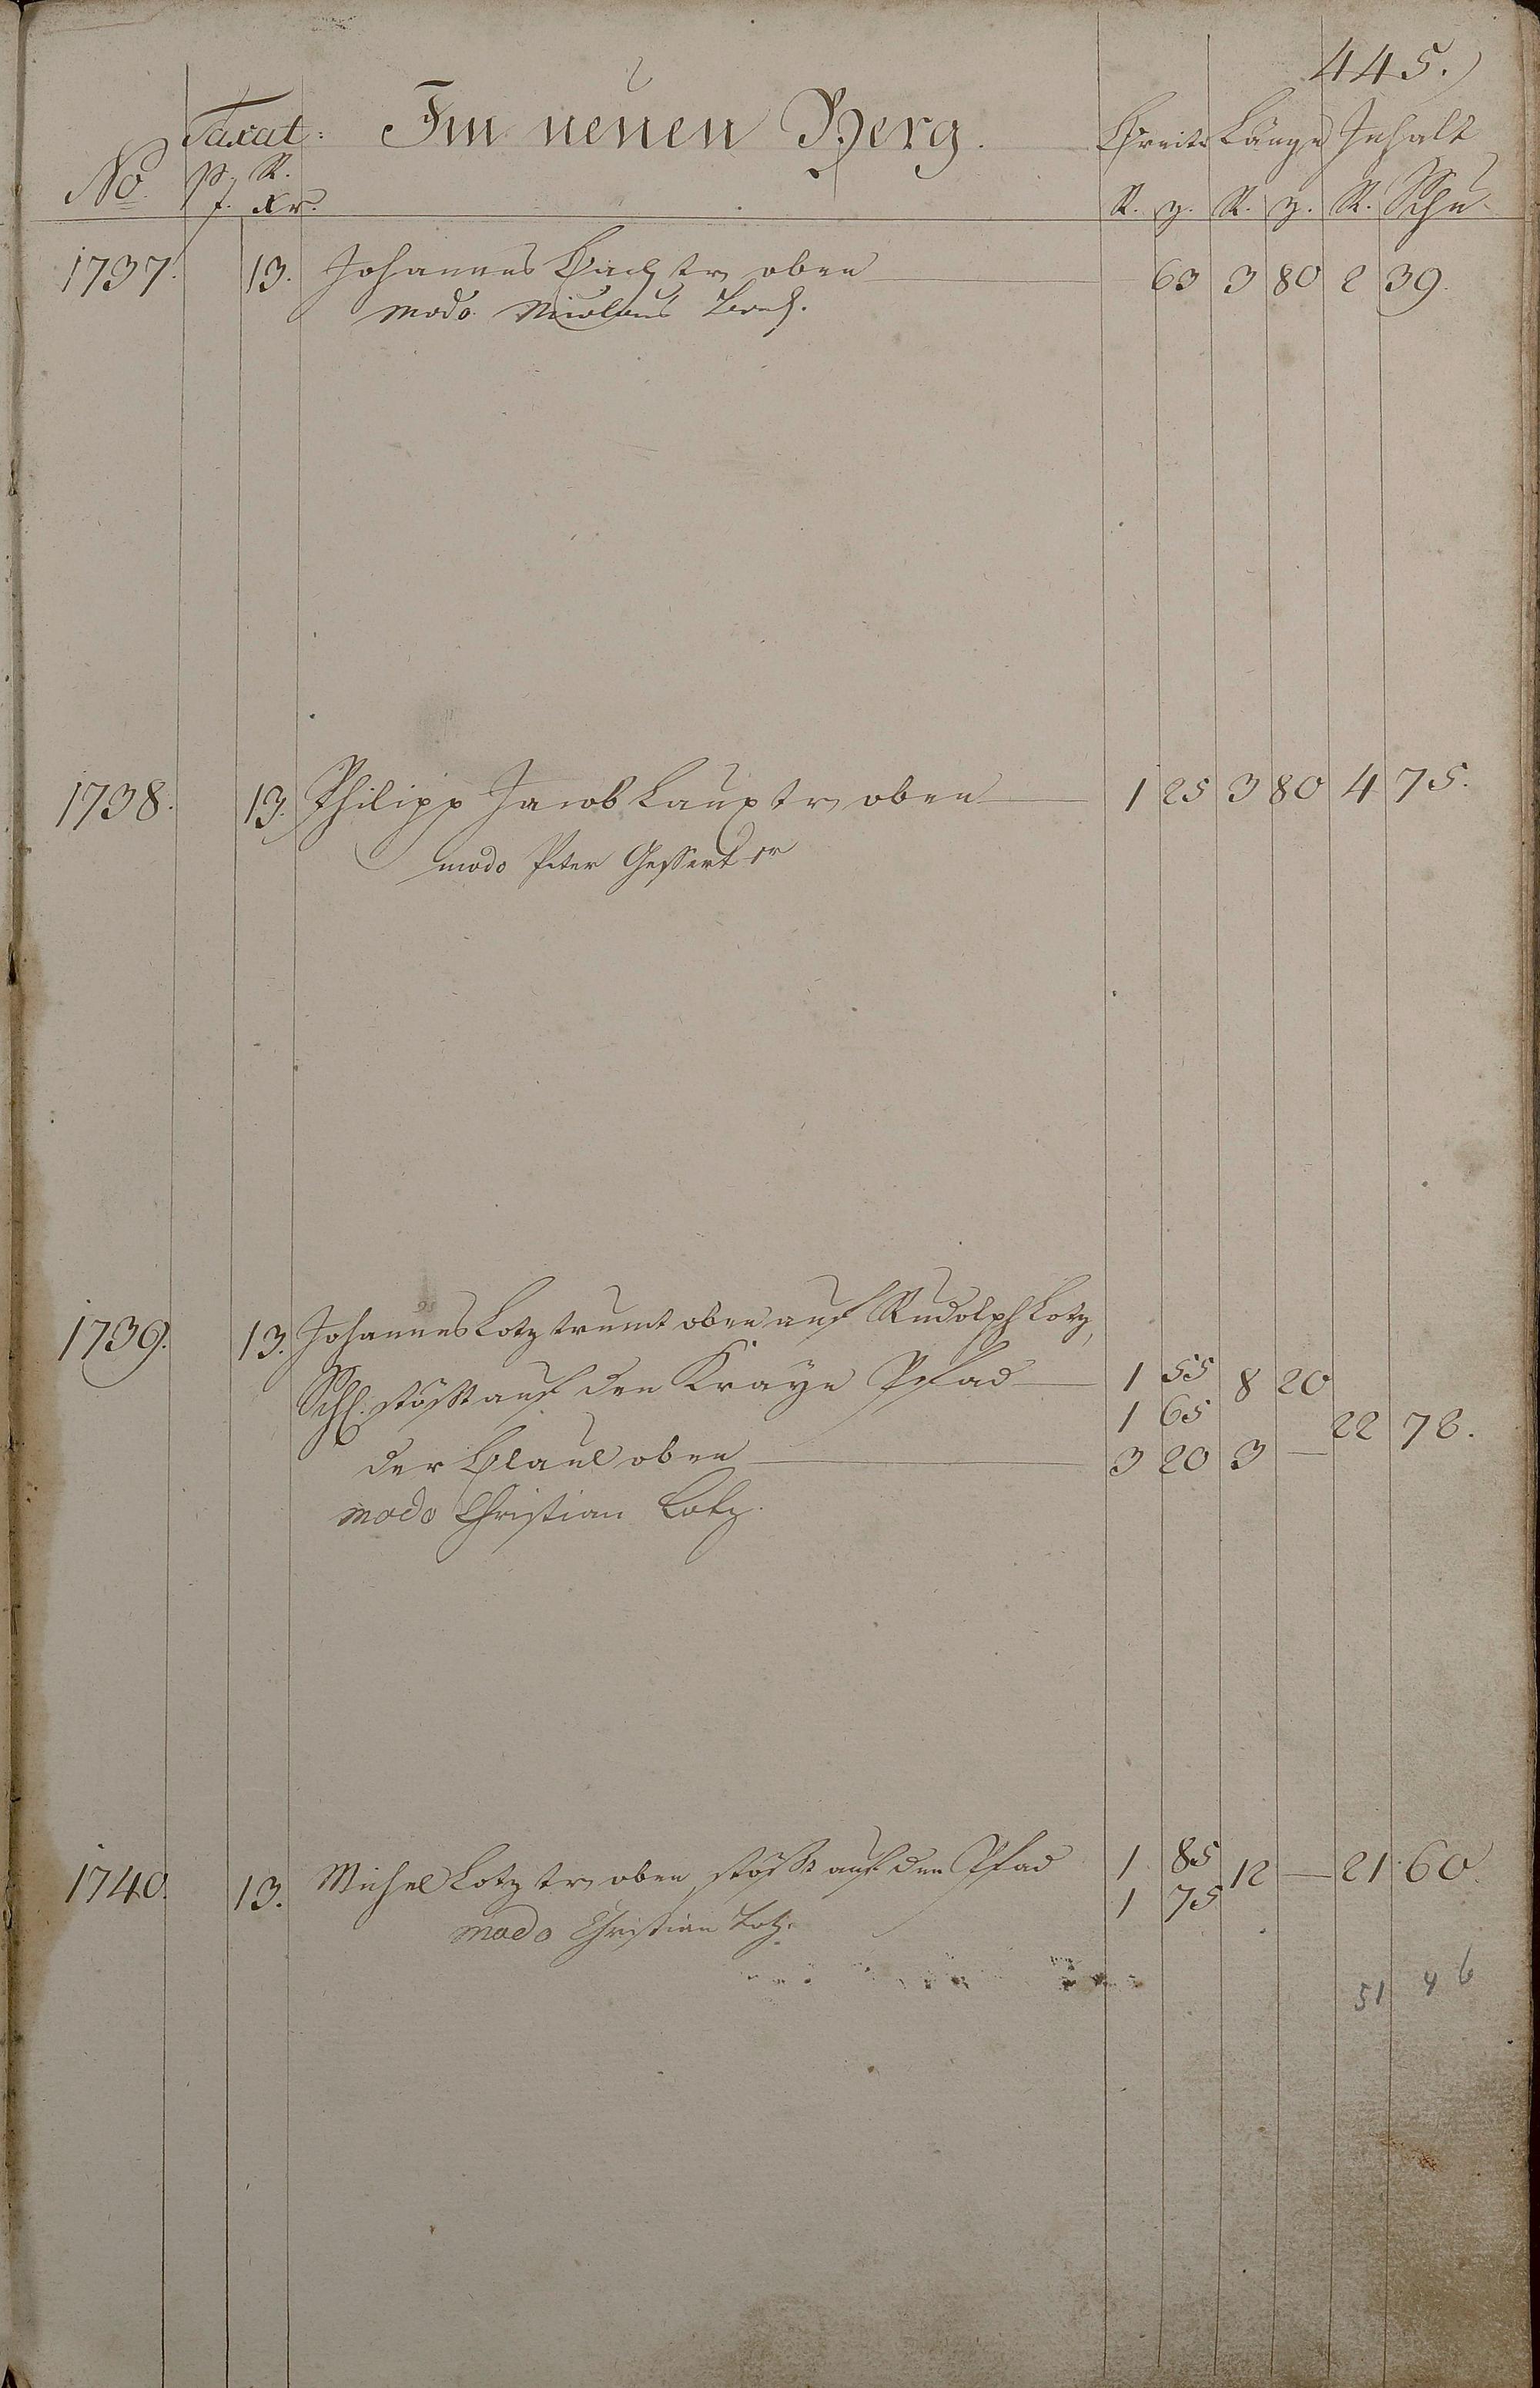 445.)
Taxat: Im neuen Berg. Breite Länge Inhalt
No. p. R.
f. Xr. R. z. R. z. R. Schu
1737. 13. Johannes Bach tr oben 63 3 80 2 39.
modo Nicolaus Bach.
1738. 13. Philipp Jacob Laux tr oben 1 25 3 80 4 75.
modo Peter Gessert
1739. 13. Johannes Lotz trumt oben auf Rudolph Lotz,
Schl. stößt auf den Kraye Pfad 1 55 8 20
1 65 22 72.
der Blaul oben 3 20 3 —
modo Christian Lotz.
1740. 13. Michel Lotz tr oben, stößt auf den Pfad 1 85 12 — 21 60.
1 75
modo Christian Lotz.
51 46